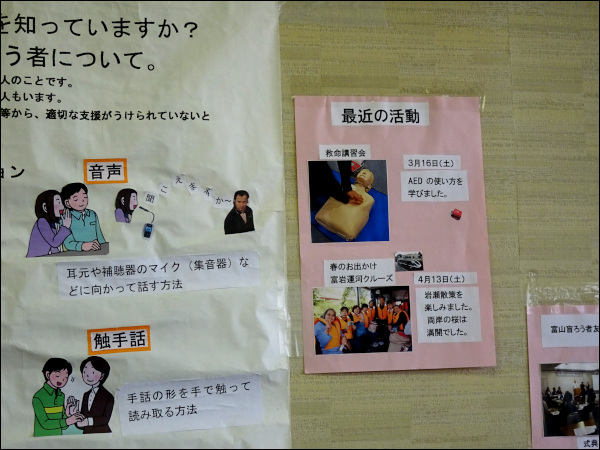 を知っていますか？
う者について。
人のことです。
人もいます。
等から、適切な支援がうけられていないと
ョン
音声
聞こえますか～
耳元や補聴器のマイク（集音器）な
どに向かって話す方法
触手話
手話の形を手で触って
読み取る方法
最近の活動
救命講習会
3月16日（土）
AEDの使い方を
学びました。
春のお出かけ
富岩運河クルーズ
4月13日（土）
岩瀬散策を
楽しみました。
両岸の桜は
満開でした。
富山盲ろう者友
式典